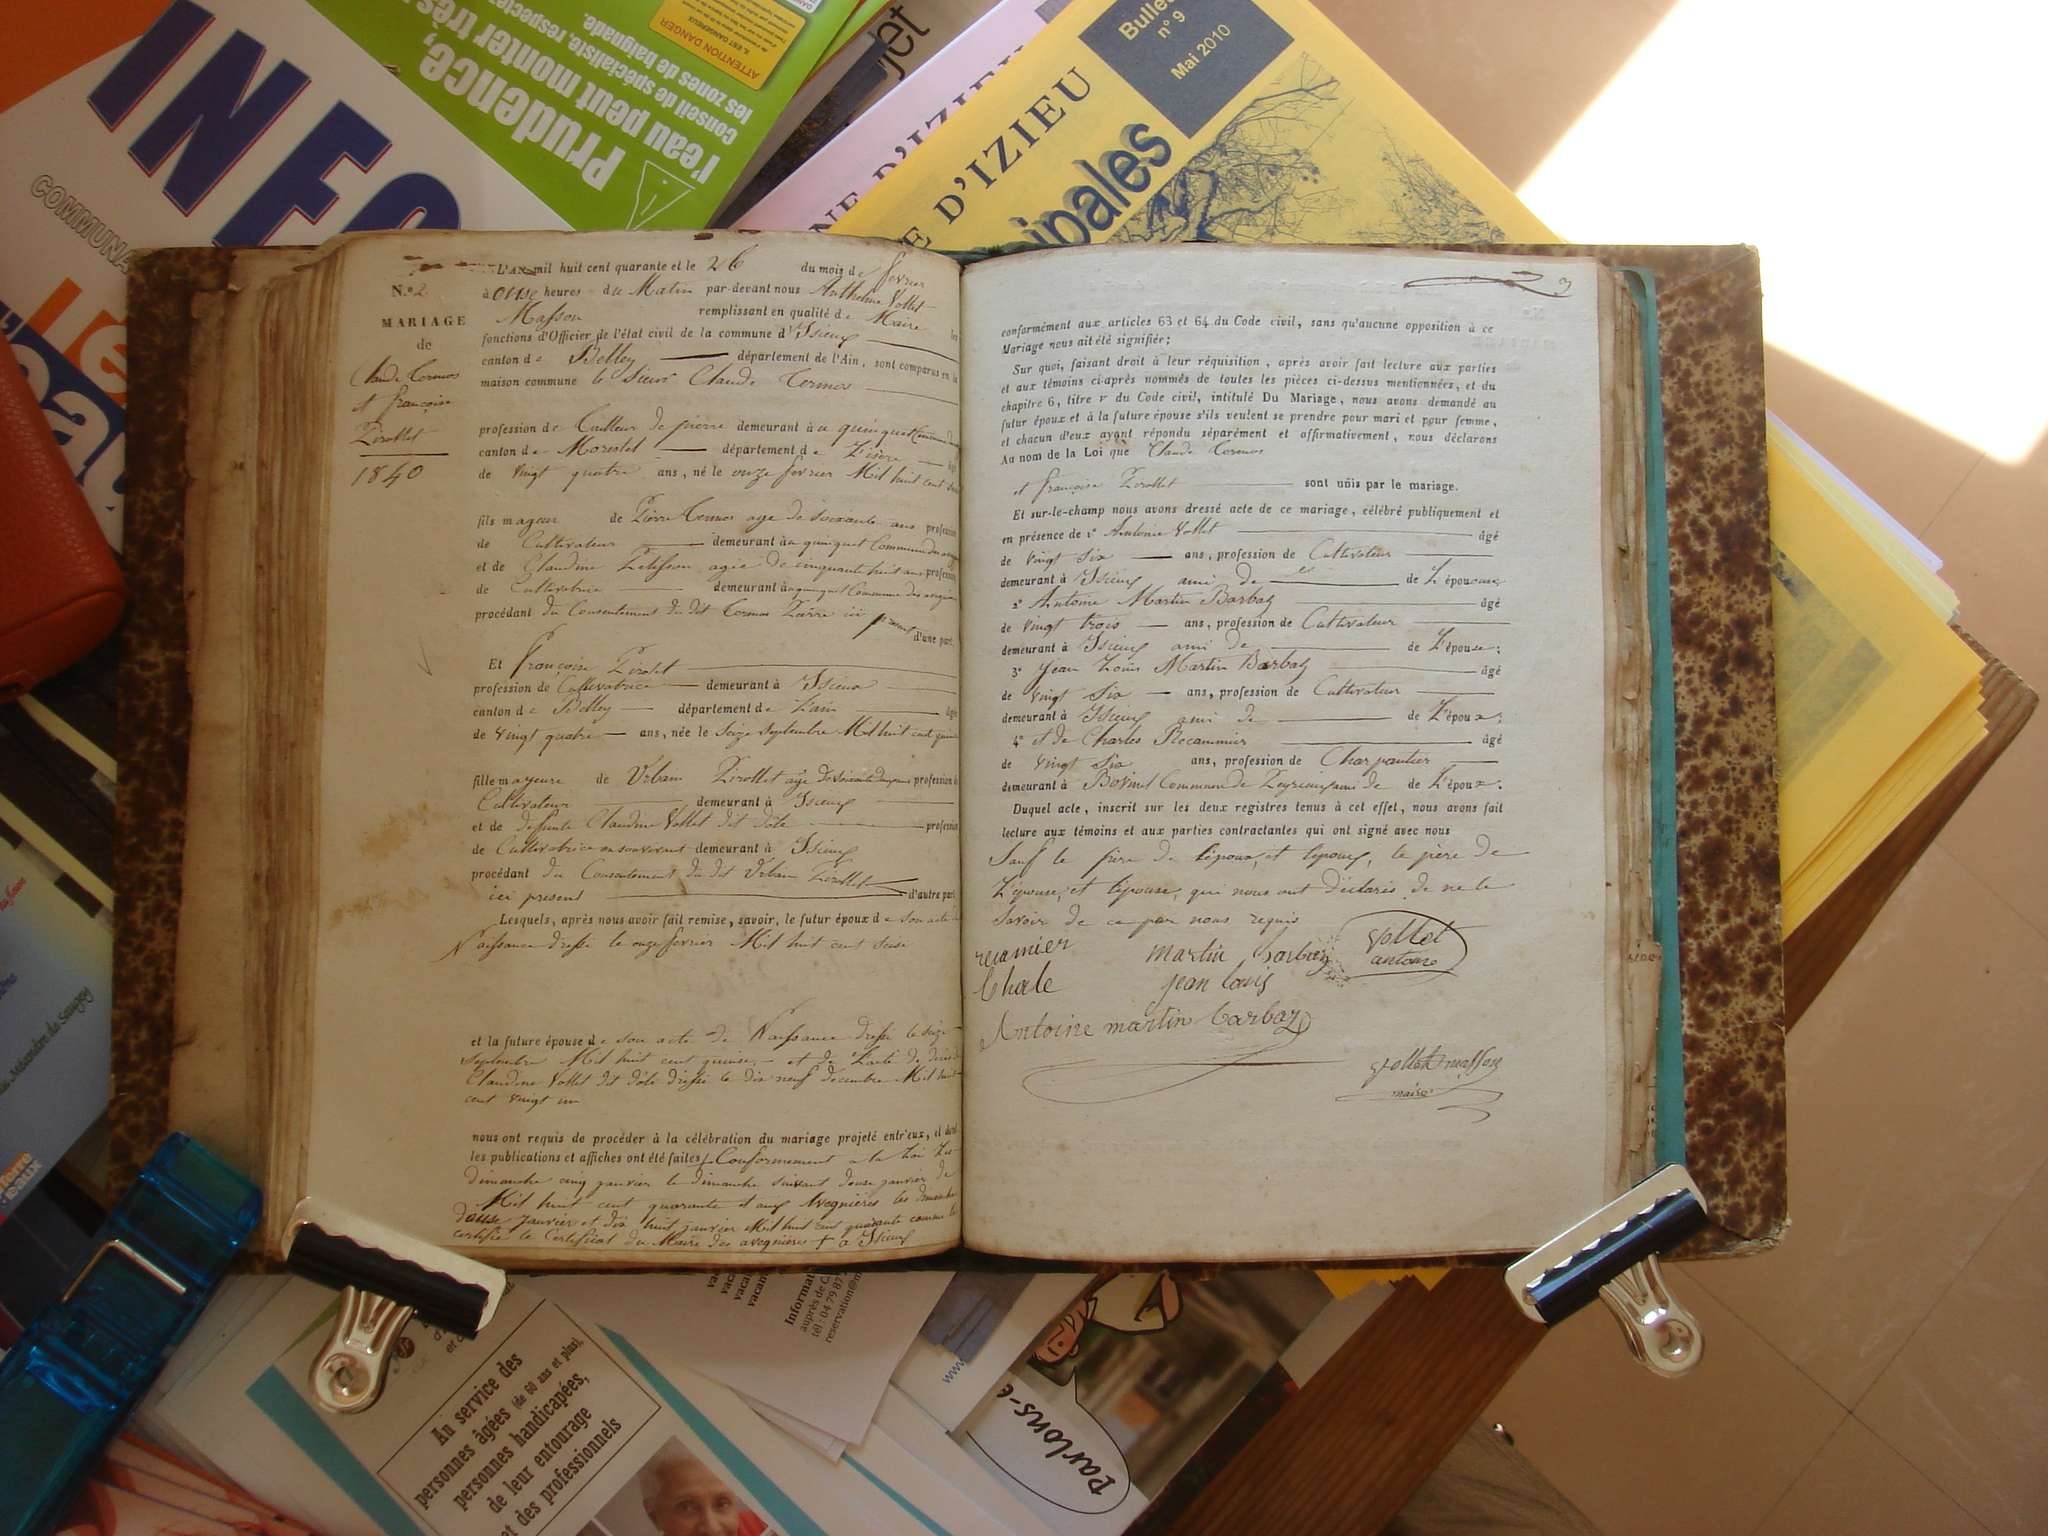 INFO
COMMUNA
Prudence,
l'eau peut monter très
conseil de spécialiste, respecte
les zones de baignade.
ATTENTION DANGER
NE D'IZIEU
E D'IZIEU
ipales
Bulle
n° 9
Mai 2010
N.º 2
MARIAGE
de
Claude Cormos
et françoise
Pirollet
1840
L'AN mil huit cent quarante et le 26 du mois de fevrier
à onse heures du Matin par-devant nous Anthelme Vollet
Masson remplissant en qualité de Maire les
fonctions d'Officier de l'état civil de la commune d'Isieux
canton de Belley département de l'Ain, sont comparus en la
maison commune le Sieur Claude Cormos
profession de Tailleur de pierre demeurant à a quinquet
canton de Morestel département de L'isère
de vingt quatre ans, né le onze fevrier Mil huit cent
fils majeur de Pierre Cormos age de soixante ans profession
de Cultivateur demeurant à a quinquet Commune des
et de Claudine agée de cinquante huit ans profession
de Cultivatrice demeurant à a quinquet Commune des
procédant du Consentement du dit Cormos Pierre ici present d'une part.
Et françoise Pirolet
profession de Cultivatrice demeurant à Isieux
canton de Belley département de L'ain âgée
de vingt quatre ans, née le Seize Septembre Mil huit cent quinze
fille mayeure de Urbain Pirollet profession de
Cultivateur demeurant à Isieux
et de deffunte Claudine Vollet dit dôle profession
de Cultivatrice en son vivant demeurant à Isieux
procédant du Consentement du dit Urbain Pirollet
ici present d'autre part.
Lesquels, après nous avoir fait remise, savoir, le futur époux de son acte de
Naissance dressé le onze fevrier Mil huit cent seise
et la future épouse de son acte de Naissance dressé le seize
Septembre Mil huit cent quinse, et de L'acte de décès de
Claudine Vollet dit dôle dressé le dix neuf decembre Mil huit
cent vingt un
nous ont requis de procéder à la célébration du mariage projeté entr'eux, et dont
les publications et affiches ont été faites Conformement a la Loi Les
dimanche cinq janvier le dimanche suivant douse janvier de
Mil huit cent quarante et aux Avegnières les dimanche
douse janvier et dix huit janvier Mil huit cent quarante comme le
certifie le Certificat du Maire des avegnières + a Isieux
3
conformément aux articles 63 et 64 du Code civil, sans qu'aucune opposition à ce
Mariage nous ait été signifiée;
Sur quoi, faisant droit à leur réquisition, après avoir fait lecture aux parties
et aux témoins ci-après nommés de toutes les pièces ci-dessus mentionnées, et du
chapitre 6, titre v du Code civil, intitulé Du Mariage, nous avons demandé au
futur époux et à la future épouse s'ils veulent se prendre pour mari et pour femme,
et chacun d'eux ayant répondu séparément et affirmativement, nous déclarons
Au nom de la Loi que Claude Cormos
et françoise Pirollet sont unis par le mariage.
Et sur-le-champ nous avons dressé acte de ce mariage, célébré publiquement et
en présence de 1º Antoine Vollet âgé
de vingt six ans, profession de Cultivateur
demeurant à Isieux ami de de L'épouse;
2º Antoine Martin Barbaz âgé
de vingt trois ans, profession de Cultivateur
demeurant à Isieux ami de de L'épouse;
3º Jean Louis Martin Barbaz âgé
de vingt Six ans, profession de Cultivateur
demeurant à Isieux ami de de L'époux;
4º et de Charles Recammier âgé
de vingt Six ans, profession de Charpantier
demeurant à Commune de ami de de L'époux.
Duquel acte, inscrit sur les deux registres tenus à cet effet, nous avons fait
lecture aux témoins et aux parties contractantes qui ont signé avec nous
Sauf le père de l'époux, et lepoux, le père de
L'épouse, et l'epouse, qui nous ont déclarés de ne le
savoir de ce par nous requis
recamier martin barbaz Vollet
Chale jean louis antoine
Antoine martin barbaz
Vollet masson
maire
Au service des
personnes âgées (de 60 ans et plus),
personnes handicapées,
de leur entourage
et des professionnels
Informat
auprès de C
tél : 04 79 87
reservation@m
www
Parlons-e